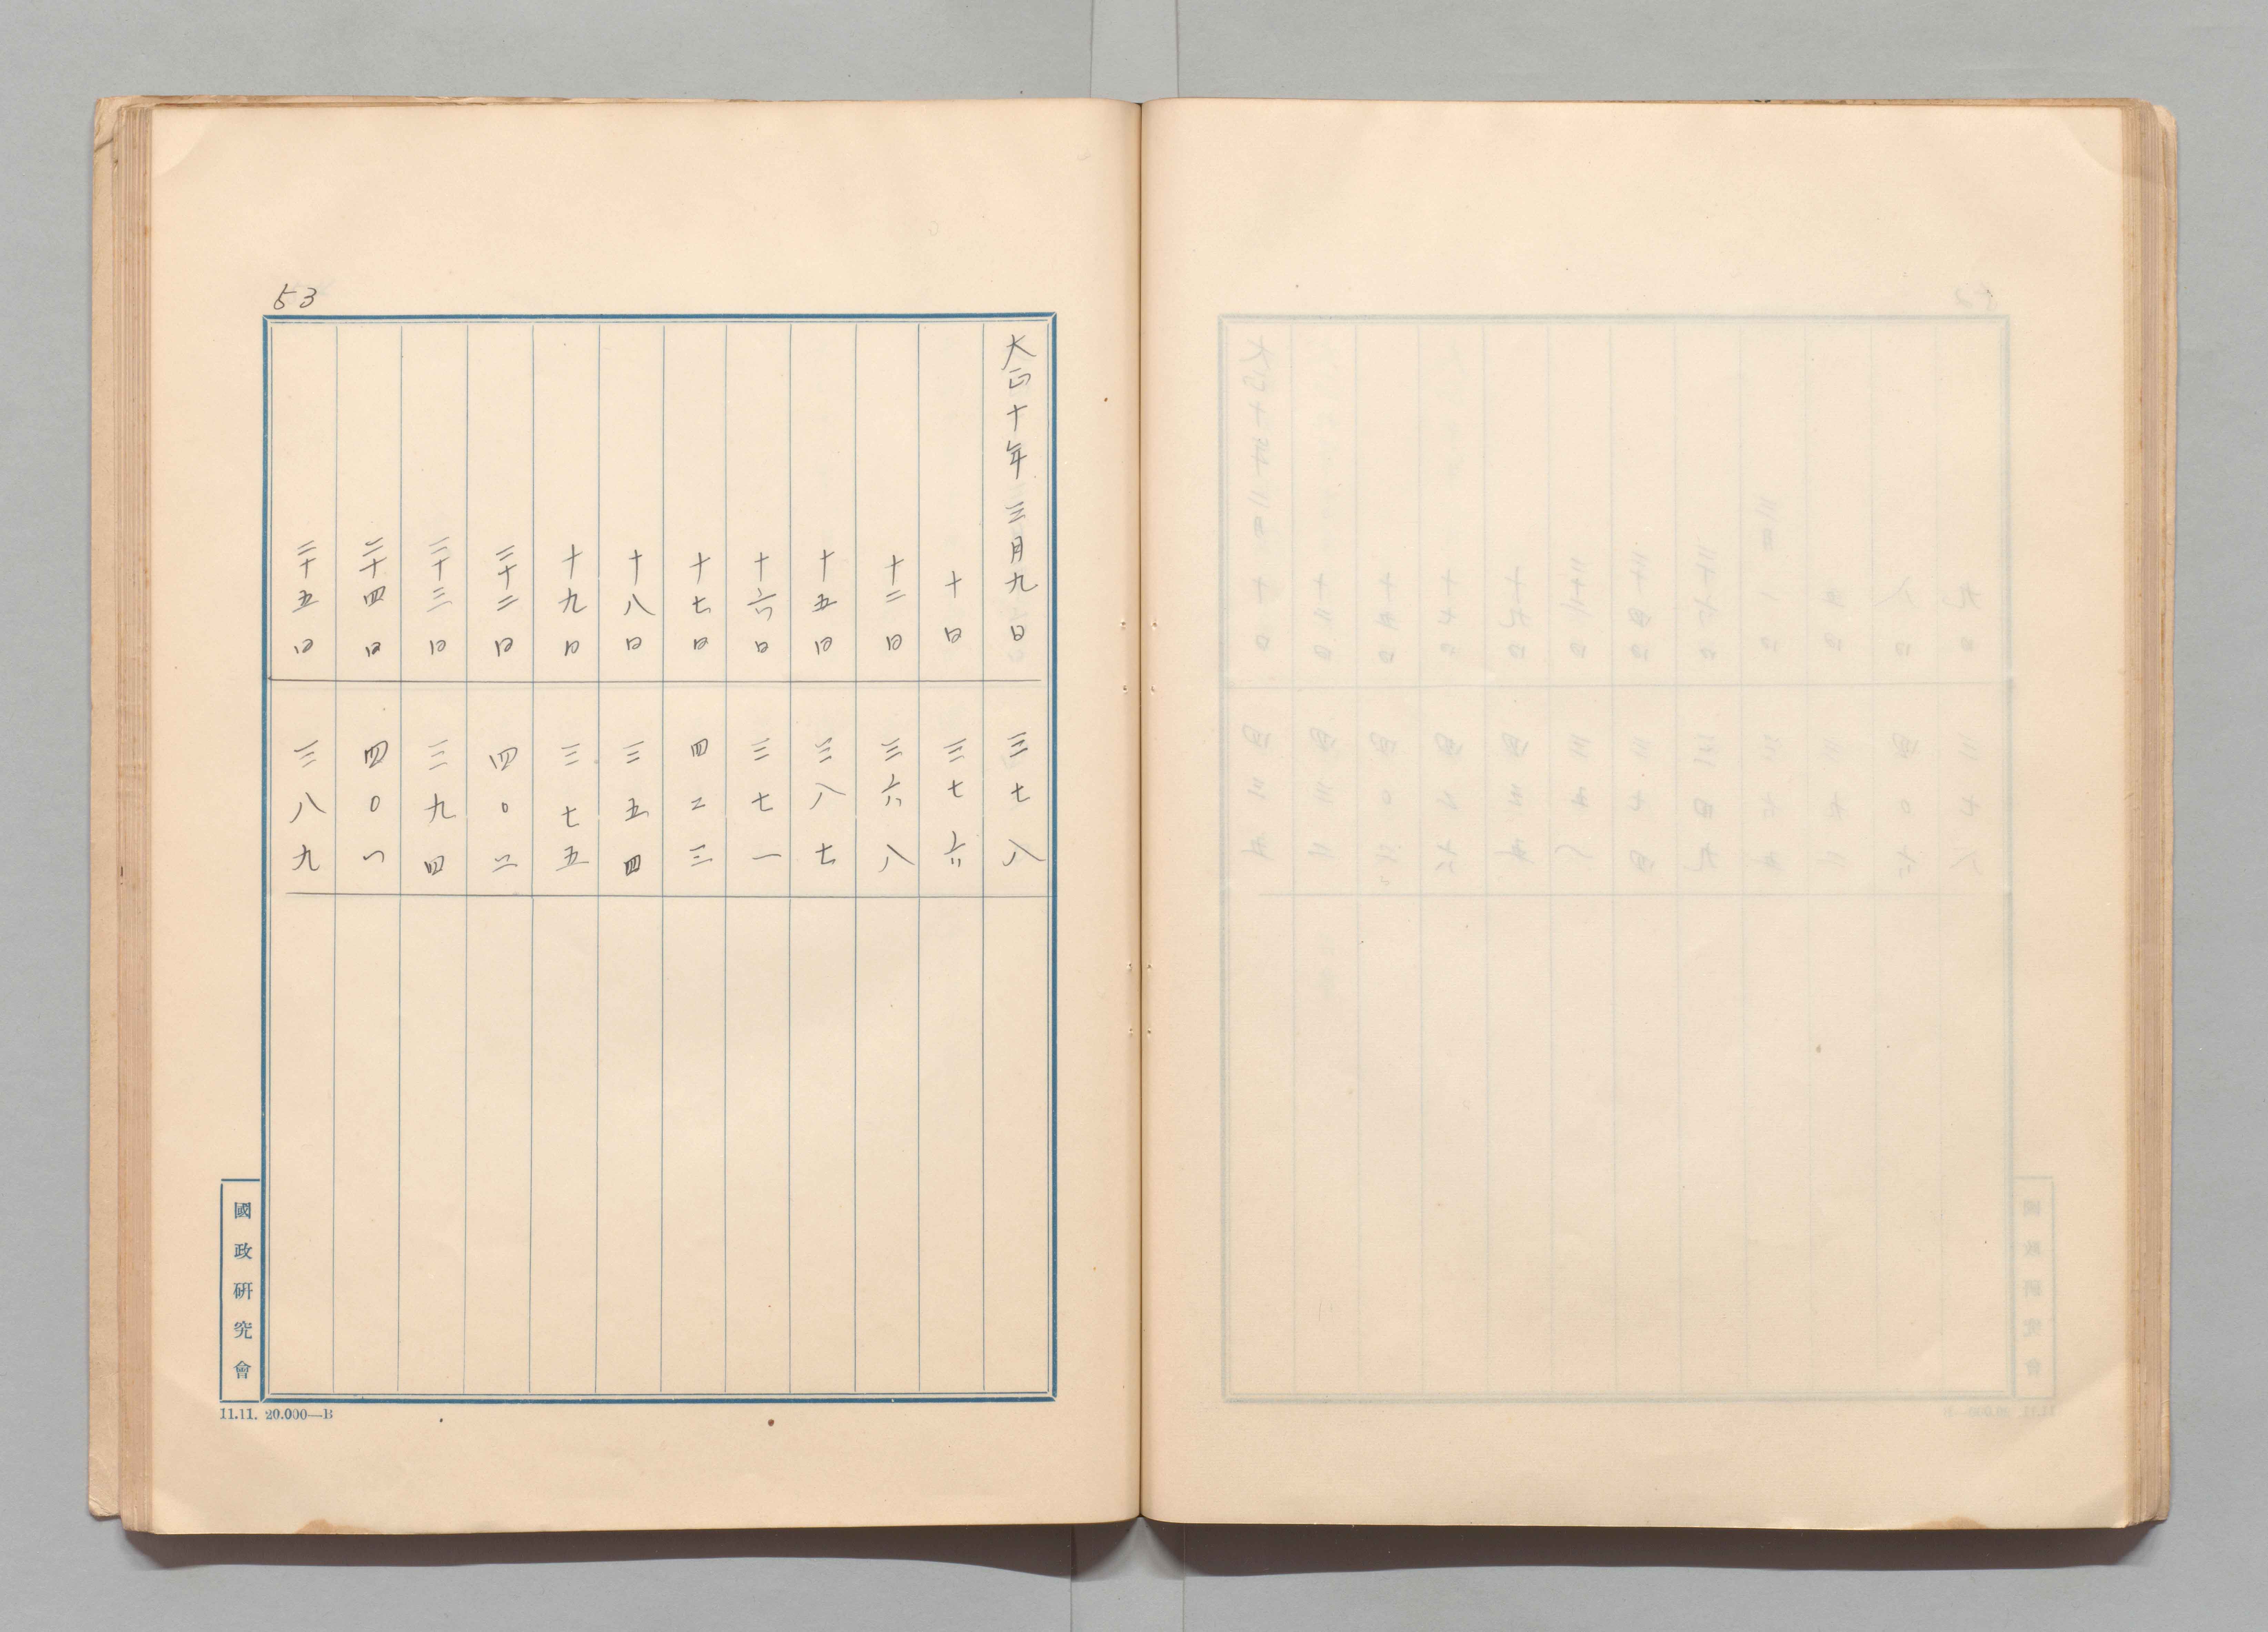 53
大正十年三月九日 三七八
十日 三七六
十二日 三六八
十五日 三八七
十六日 三七一
十七日 四二三
十八日 三五四
十九日 三七五
二十二日 四〇二
二十三日 三九四
二十四日 四〇一
二十五日 三八九
國政研究會
11.11. 20.000—B